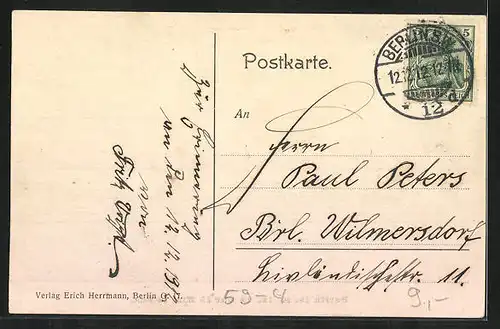 Postkarte.
5
BERLIN S.W.
12.12.12.12-1N
* 12 d
An
Herrn
Paul Peters
Brl. Wilmersdorf
Livländischestr. 11.
Zur Erinnerung
an den 12.12.1912
von
Fritz
Verlag Erich Herrmann, Berlin C. 
59-4
9,-